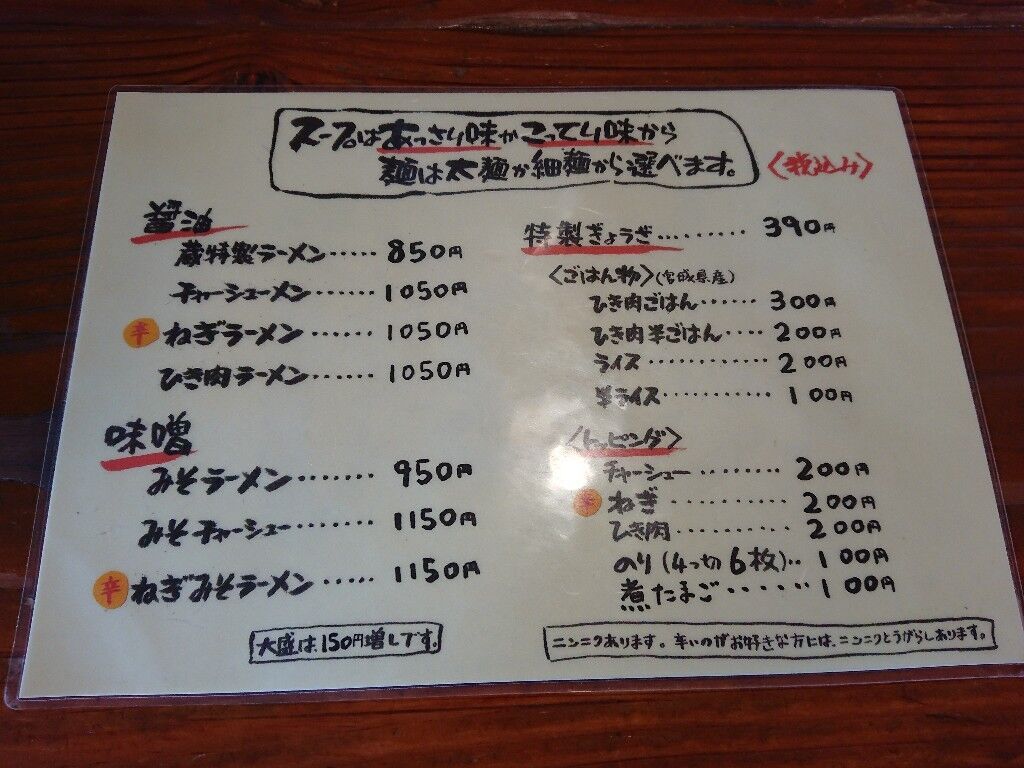 スープはあっさり味かこってり味から
麺は太麺か細麺から選べます。
〈税込み〉
醤油
蔵特製ラーメン・・・・・850円
チャーシューメン・・・・・・1050円
辛 ねぎラーメン・・・・・・1050円
ひき肉ラーメン・・・・・・1050円
味噌
みそラーメン・・・・・・・950円
みそチャーシュー・・・・・・・1150円
辛 ねぎみそラーメン・・・・・1150円
大盛は、150円増しです。
特製ぎょうざ・・・・・・・・・390円
〈ごはん物〉(宮城県産)
ひき肉ごはん・・・・・・300円
ひき肉半ごはん・・・・200円
ライス・・・・・・・・・・・・200円
半ライス・・・・・・・・・・・100円
〈トッピング〉
チャーシュー・・・・・・・・200円
辛 ねぎ・・・・・・・・・・・200円
ひき肉・・・・・・・・・・・200円
のり(4つ切6枚)・・100円
煮たまご・・・・・・・100円
ニンニクあります。辛いのがお好きな方には、ニンニクとうがらしあります。